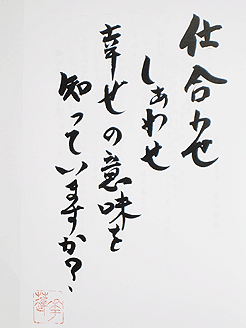 仕合わせ
しあわせ
幸せの意味を
知っていますか?